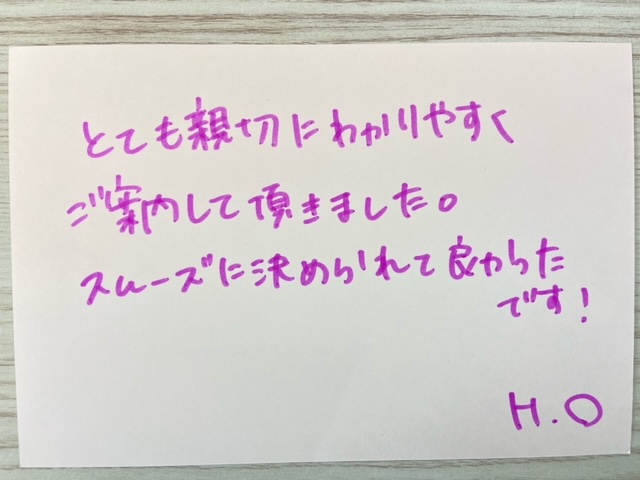 とても親切にわかりやすく
ご案内して頂きました。
スムーズに決められて良かった
です!
H.O